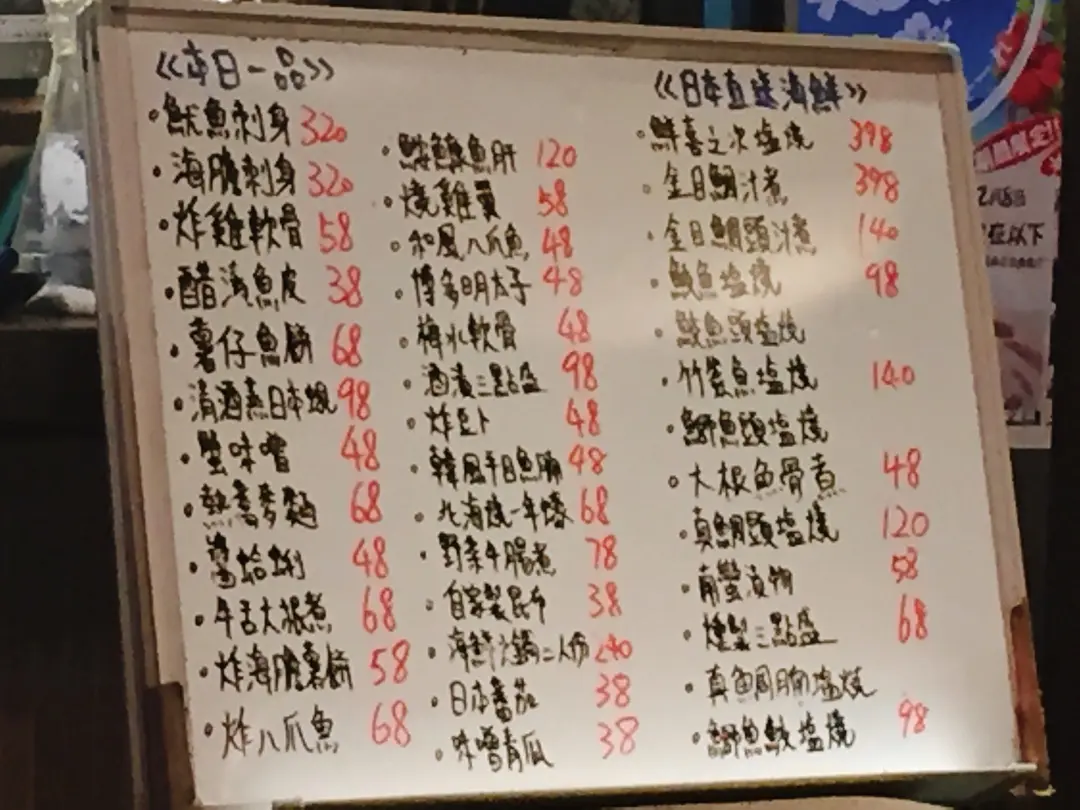 《本日一品》
·魷魚刺身 320
·海膽刺身 320
·炸雞軟骨 58
·醋漬魚皮 38
·薯仔魚餅 68
·清酒蒸日本蜆 98
·蟹味噌 48
·熱蕎麥麵 68
·蛤蜊 48
·牛舌大根煮 68
·炸海膽薯餅 58
·炸八爪魚 68
·鮟鱇魚肝 120
·燒雞翼 58
·和風八爪魚 48
·博多明太子 48
·梅水軟骨 48
·酒漬三點盛 98
·炸豆卜 48
·韓風平日魚腩 48
·北海燒一年蠔 68
·野菜牛腸煮 78
·自家製昆布 38
·海鮮鍋二人份 240
·日本蕃茄 38
·味噌青瓜 38
《日本直送海鮮》
·鮮喜之次塩燒 398
·金目鯛汁煮 398
·金目鯛頭汁煮 140
·魚塩燒 98
·魚頭塩燒
·竹筴魚塩燒 140
·鰤魚頭塩燒
·大根魚骨煮 48
·真鯛頭塩燒 120
·漬物 58
·燻製三點盛 68
·真鯛腩塩燒
·鰤魚鮫塩燒 98
在以下